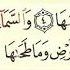 ـهَا ٤ وَٱلسَّمَا
رْضِ وَمَا طَحَىٰهَا